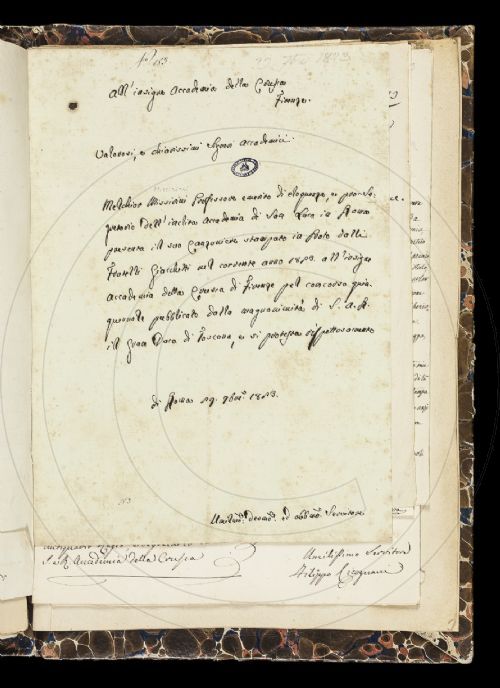 All'insigne Accademia della Crusca
Firenze.
Valorosi, e chiarissimi Signori Accademici
Melchior Missirini Professore emerito di eloquenza, e pro-Se-
gretario dell'inclita Accademia di San Luca in Roma
presenta il suo Canzoniere stampato in Prato dalli
Fratelli Giachetti nel corrente anno 1823. all'insigne
Accademia della Crusca di Firenze pel concorso quin-
quennale pubblicato dalla magnanimità di S. A. R.
il Gran Duca di Toscana, e si protesta rispettosamente
di Roma 29. 9bre 1823.
Umilmo. devmo. ed obbmo. Servitore
S. e R. Accademia della Crusca
Umilissimo Servitore
Filippo